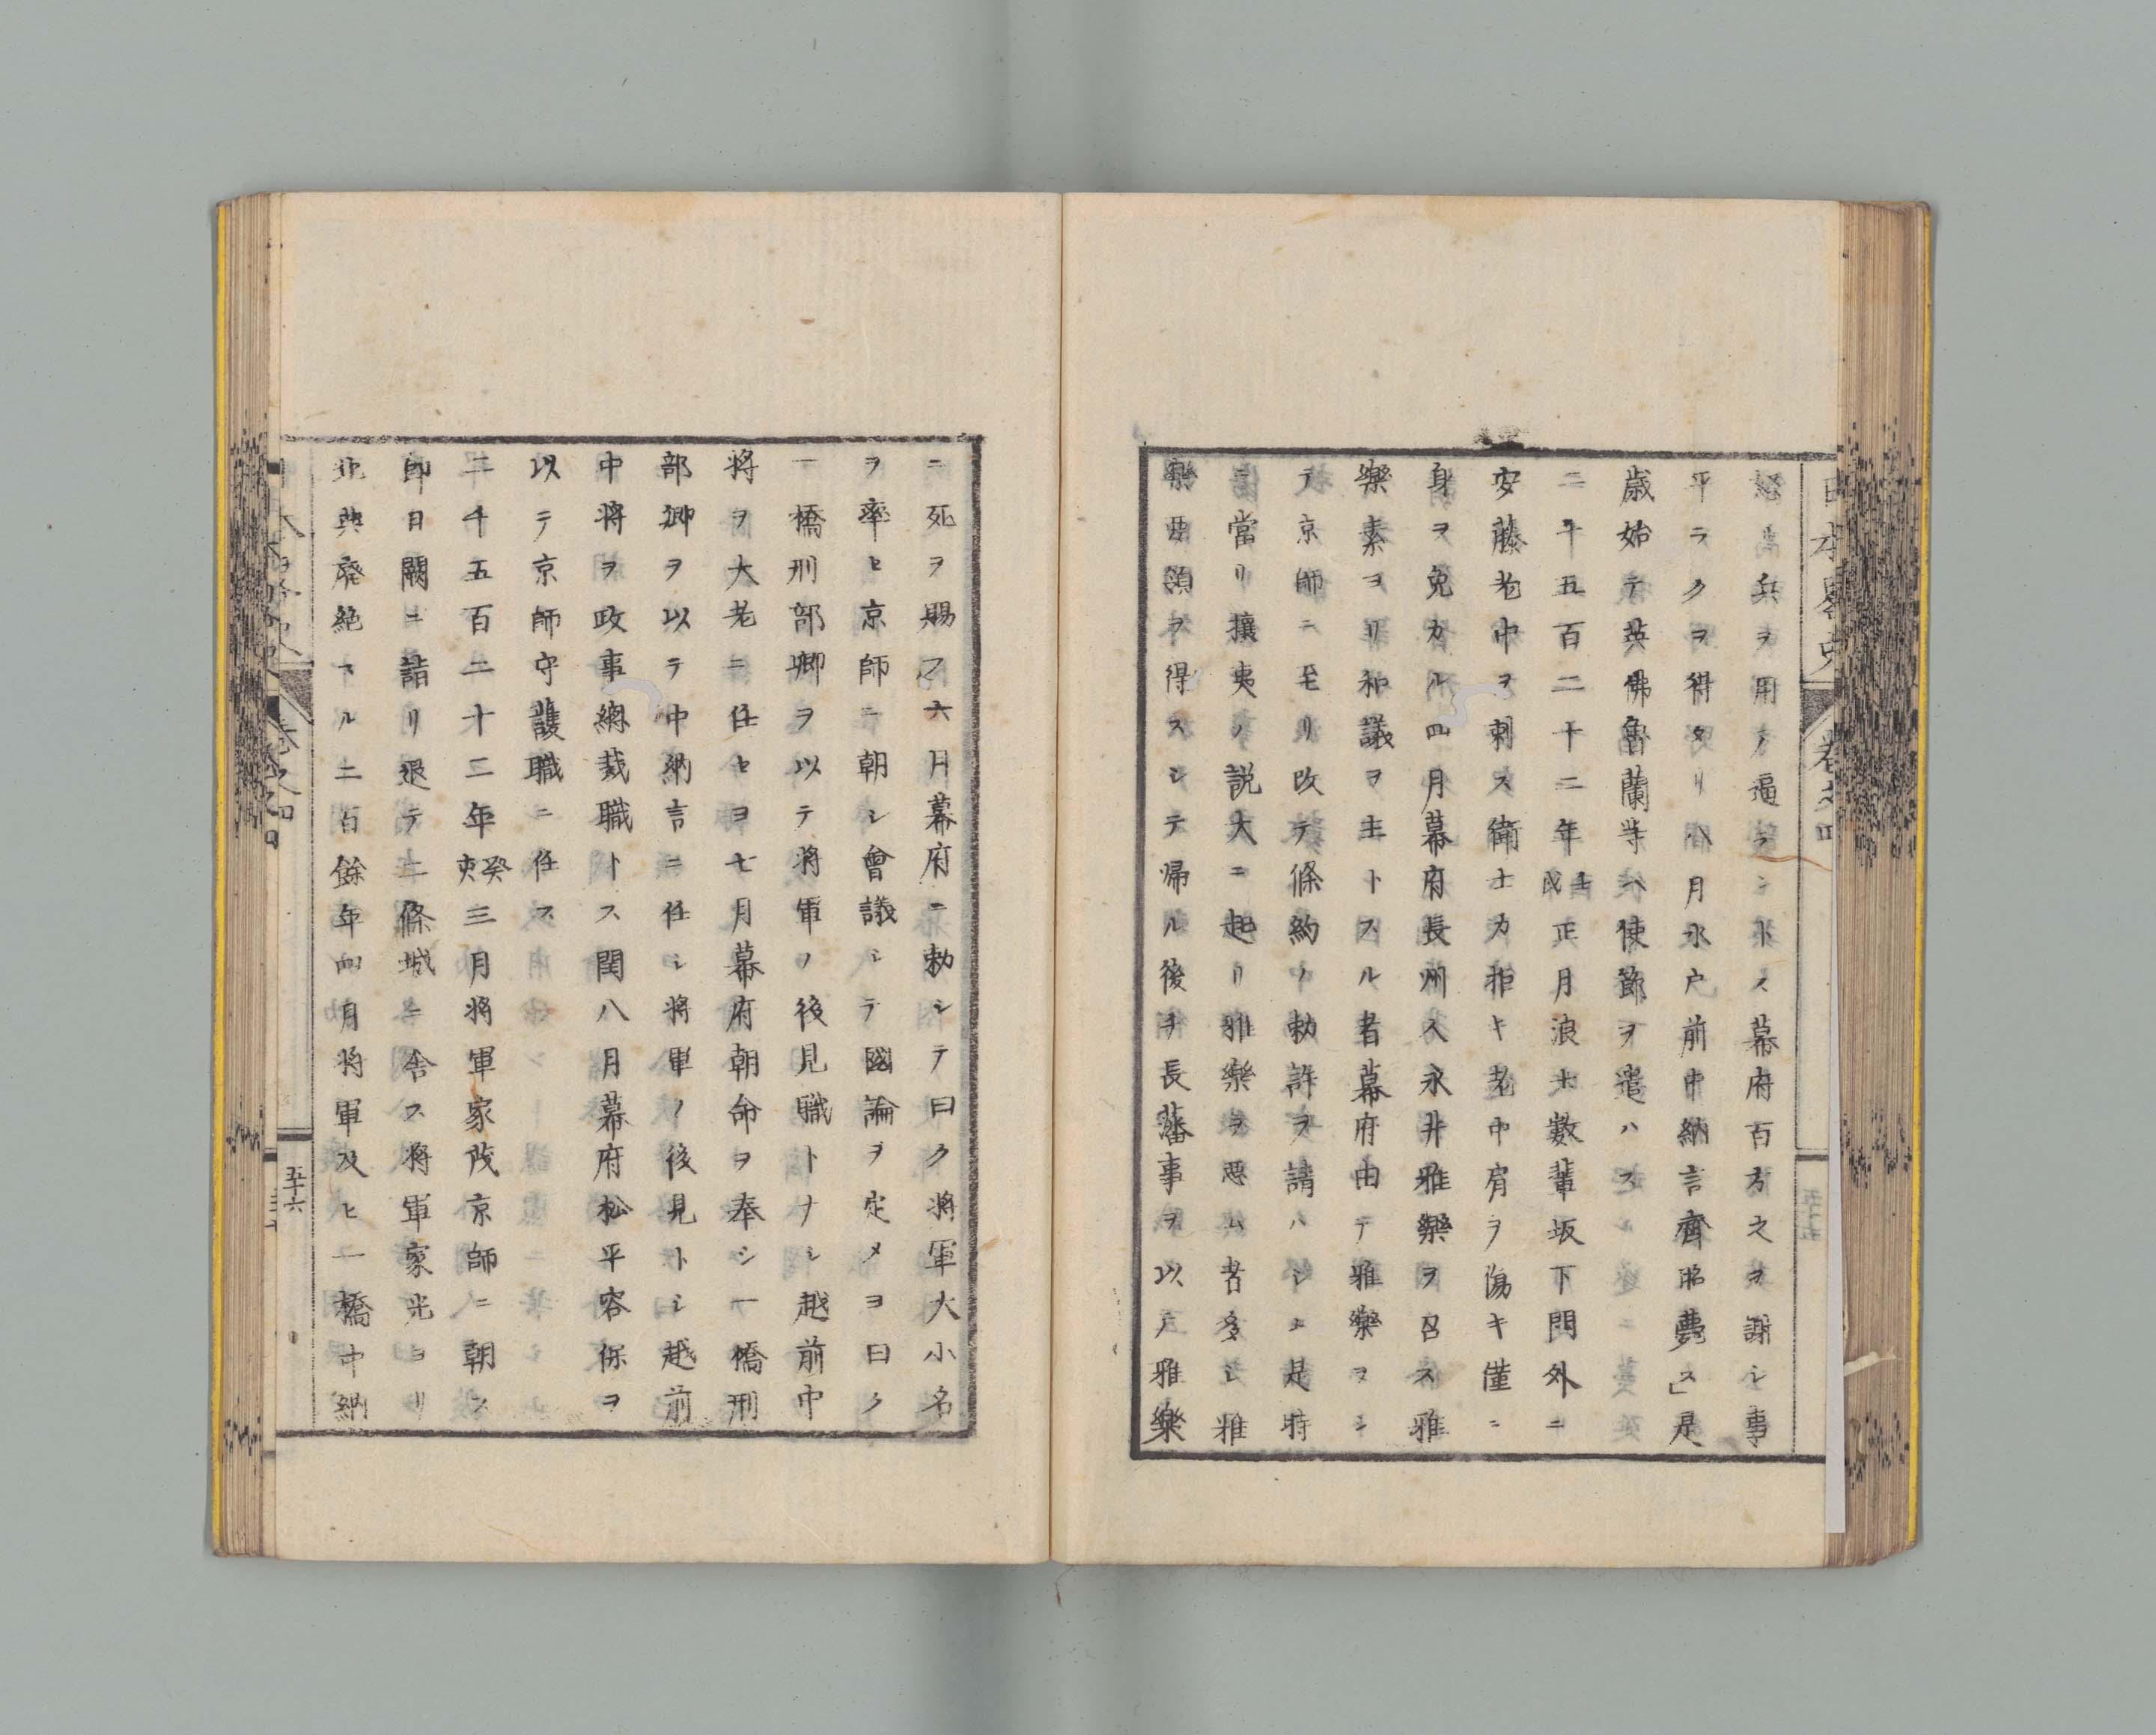 日本畧史　卷之四
怒兵ヲ用テ逼ラントス幕府百方之ヲ謝シ事
平ラクヲ得タリ八月水戸前中納言齊昭薨ス」是
歳始テ英佛魯蘭等ヘ使節ヲ遣ハス
二千五百二十二年壬戌正月浪士數輩坂下門外ニ
安藤老中ヲ刺ス衛士力拒キ老中肩ヲ傷キ僅ニ
身ヲ免カル四月幕府長州人永井雅樂ヲ召ス雅
樂素ヨリ和議ヲ主トスル者幕府由テ雅樂ヲシ
テ京師ニ至リ改テ條約ノ勅許ヲ請ハシム是時
ニ當リ攘夷ノ説大ニ起リ雅樂ヲ惡ム者多シ雅
樂要領ヲ得スシテ帰ル後チ長藩事ヲ以テ雅樂
ニ死ヲ賜フ六月幕府ニ勅シテ曰ク將軍大小名
ヲ率ヒ京師ニ朝シ會議シテ國論ヲ定メヨ曰ク
一橋刑部卿ヲ以テ將軍ノ後見職トナシ越前中
將ヲ大老ニ任セヨ七月幕府朝命ヲ奉シ一橋刑
部卿ヲ以テ中納言ニ任シ將軍ノ後見トシ越前
中將ヲ政事總裁職トス閏八月幕府松平容保ヲ
以テ京師守護職ニ任ス
二千五百二十三年癸亥三月將軍家茂京師ニ朝ス
即日闕ニ詣リ退テ二條城ニ舎ス將軍家光ヨリ
此典廢絶スル二百餘年四月將軍及ヒ一橋中納
五十六